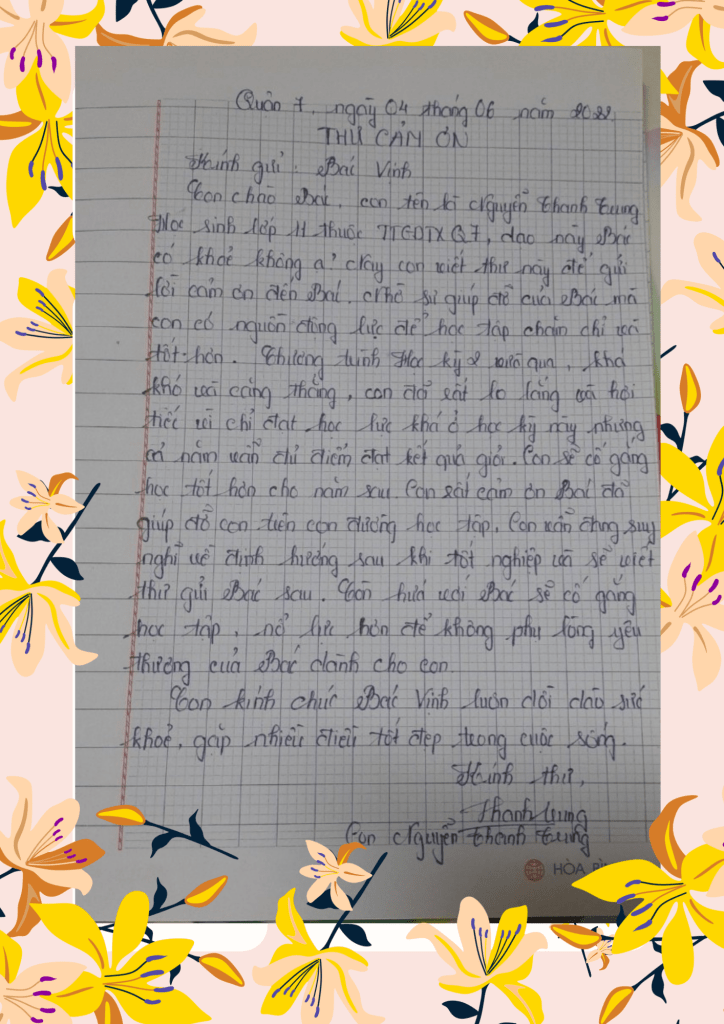 Quận 7, ngày 04 tháng 06 năm 2022
THƯ CẢM ƠN
Kính gửi : Bác Vinh
Con chào Bác, con tên là Nguyễn Thanh Trung
Học sinh lớp 11 thuộc TTGDTX Q7, dạo này Bác
có khoẻ không ạ? Đây con viết thư này để gửi
lời cảm ơn đến Bác. Nhờ sự giúp đỡ của Bác mà
con có nguồn động lực để học tập chăm chỉ và
tốt hơn. Chương trình Học kỳ 2 vừa qua, khá
khó và căng thẳng, con đã rất lo lắng và hối
tiếc vì chỉ đạt học lực khá ở học kỳ này nhưng
cả năm vẫn đủ điểm đạt kết quả giỏi. Con sẽ cố gắng
học tốt hơn cho năm sau. Con rất cảm ơn Bác đã
giúp đỡ con trên con đường học tập. Con vẫn đang suy
nghĩ về định hướng sau khi tốt nghiệp và sẽ viết
thư gửi Bác sau. Con hứa với Bác sẽ cố gắng
học tập, nổ lực hơn để không phụ lòng yêu
thương của Bác dành cho con.
Con kính chúc Bác Vinh luôn dồi dào sức
khoẻ, gặp nhiều điều tốt đẹp trong cuộc sống.
Kính thư,
Thanh Trung
Con Nguyễn Thanh Trung
HÒA